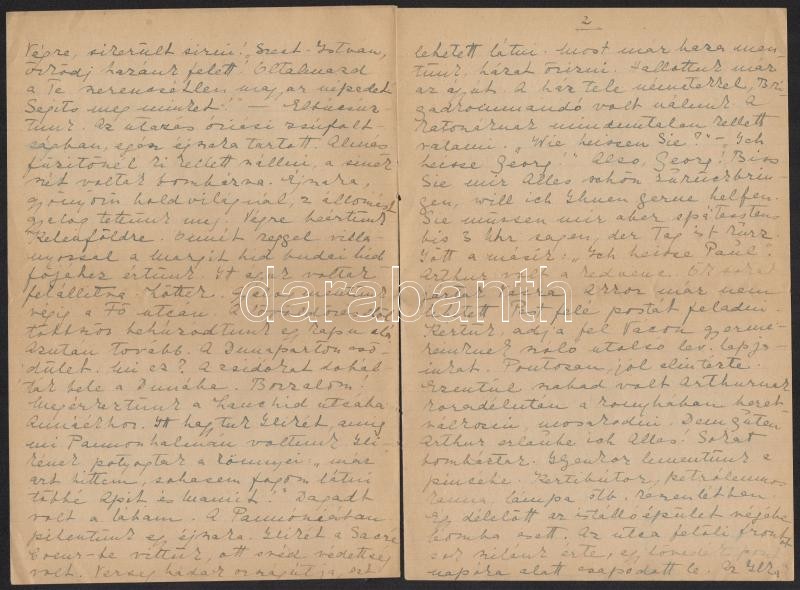 Végre, sikerült sírni! „Szent-István,
őrködj hazánk felett! Oltalmazd
a Te szerencsétlen magyar népedet
Segíts meg minket!" – Elbúcsúz-
tunk. Az utazás óriási zsúfolt-
ságban, egész éjszaka tartott. Almás-
füzitőnél ki kellett szállni, a sínek
szét voltak bombázva. Éjszaka,
gyönyörű holdvilágnál, 2 állomást
gyalog tettünk meg. Végre beértünk
Kelenföldre. Onnét reggel villa-
nyossal a Margit híd budai híd
főjéhez értünk. Itt voltak
felállítva. Lőttek. mentünk
végig a Fő utcán. A lövöldözés
többször behúzódtunk egy kapu alá
Azután tovább. A Dunaparton cső-
dület. Mi ez? A zsidókat dobál-
ták bele a Dunába. Borzalom!
Megérkeztünk a Lánchíd utcába
Annáékhoz. Itt hagytuk Glizét, amíg
mi Pannonhalmán voltunk.
potyogtak a könnyei: „már
azt hittem, sohasem fogom látni
többé Apit és Mamit!" Dagadt
volt a lábam. A Pannóniában
pihentünk egy éjszaka. Glizét a Sacré
Coeur-be vittük, ott svéd védettség
volt.
2
lehetett látni. Most már haza men-
tünk, házat őrizni. Hallottuk már
az ágyút. A ház tele németekkel, Bri-
gadkommandó volt nálunk. A
katonáknak minduntalan kellett
valami. „Wie heissen Sie?" – „Ich
heisse Georg!" Also, Georg! Biss
Sie mir Alles schön zurückbrin-
gen, will ich Ihnen gerne helfen.
Sie müssen mir aber spätestens
bis 3 Uhr sagen, der Tag ist kurz.
Jött a másik: „Ich heisse Paul".
Arthur volt a kedvenc.
már nem
lehetett Pest felé postát feladni.
Kértük, adja fel Vácon gyerme-
keinknek szóló utolsó lev. lapja-
inkat. Pontosan, jól elintézte.
Ezentúl szabad volt Arthurnak
koradélután a konyhában beret-
válkozni, mosakodni. Dem guten
Arthur erlaube ich Alles! Sokat
bombáztak. Ilyenkor lementünk a
pincébe. Kertibútor, petróleumos
kanna, lámpa stb. kezünkben.
Egy délelőtt az istállóépület végébe
bomba esett. Az utca felőli front
sok szilánk érte, egy
napóra alatt csapódott le. Az